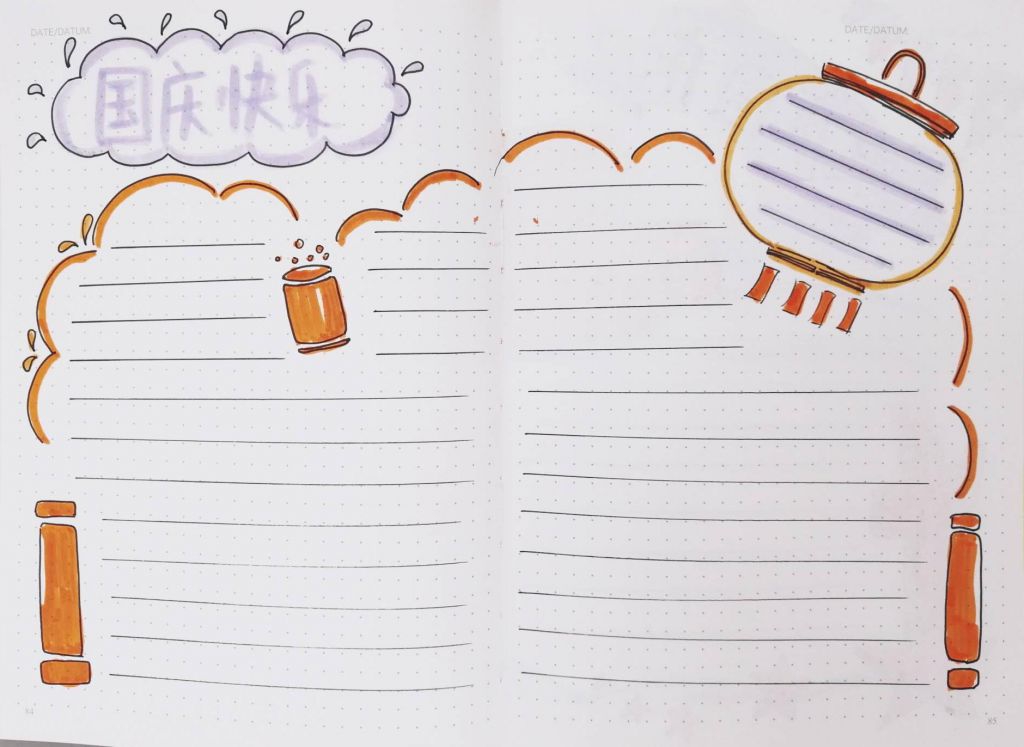 DATE/DATUM
DATE/DATUM
国庆快乐
84
85